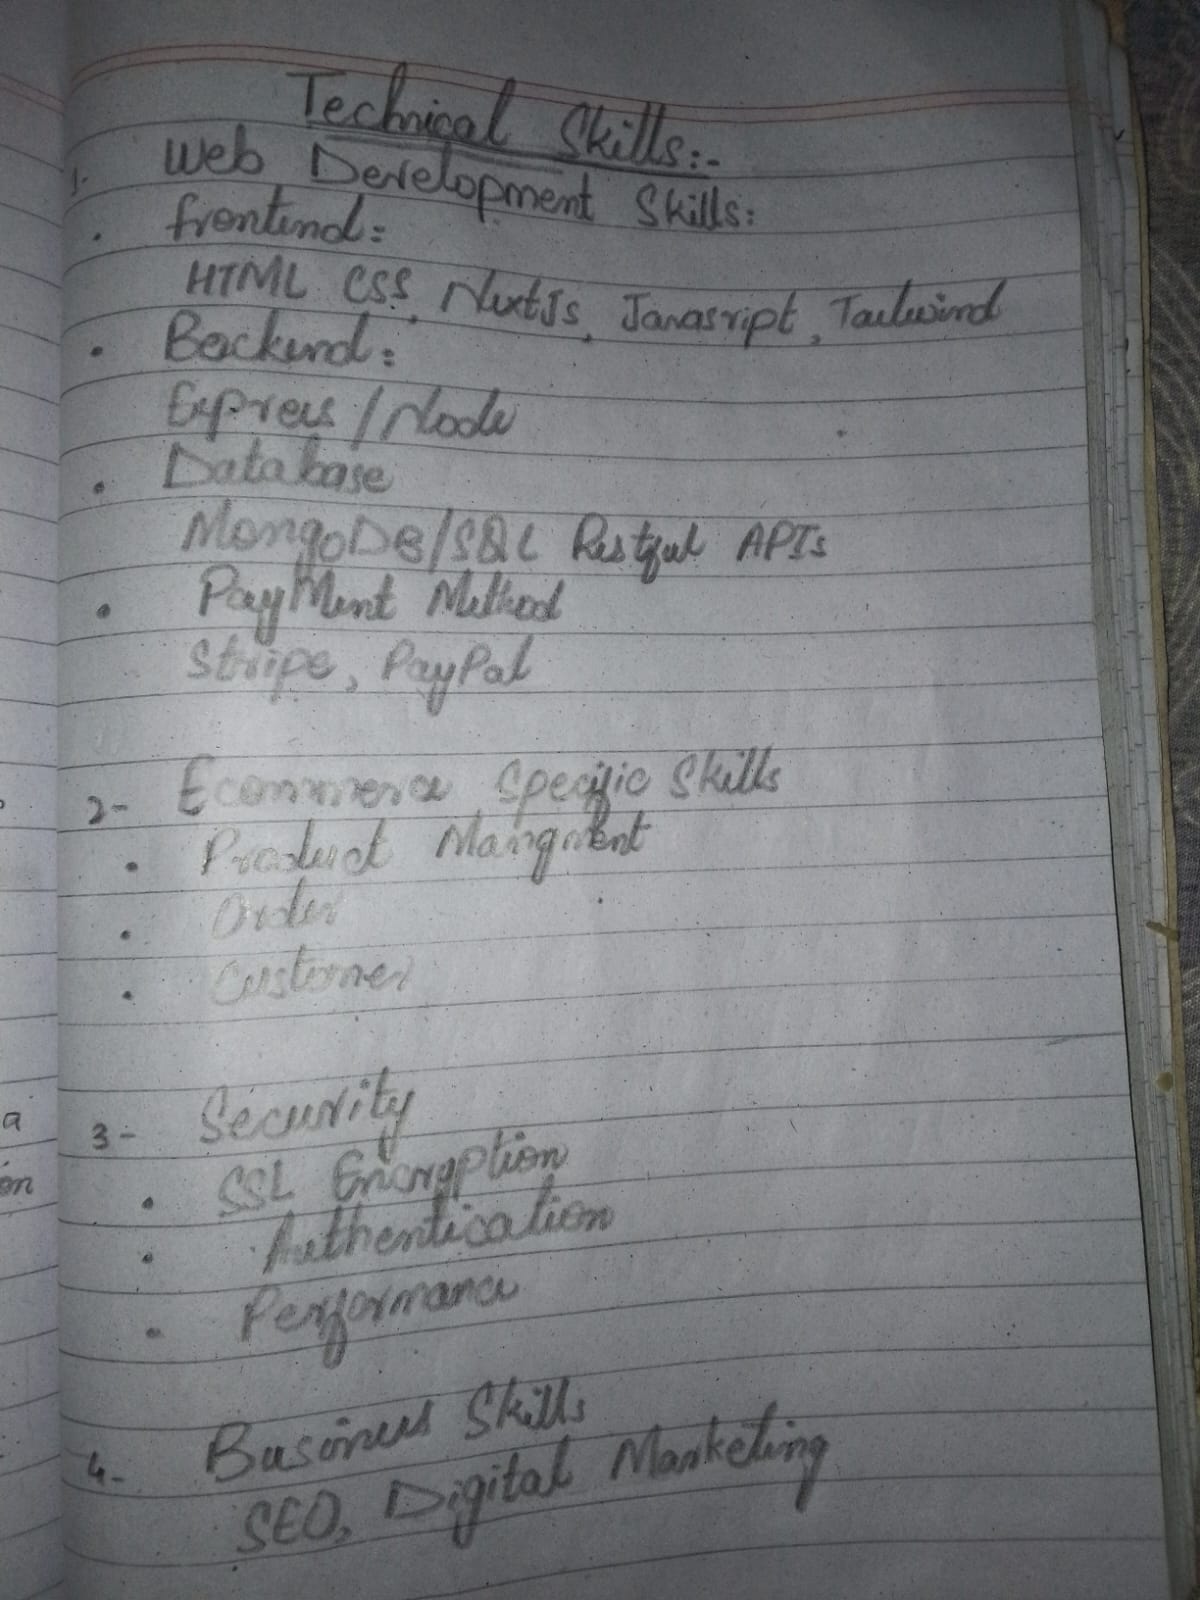 Technical Skills:-
1- Web Development Skills:
• frontend:
HTML CSS, NextJs, Javasript, Tailwind
• Backend:
Express/Node
• Database
MongoDB/SQL Restful APIs
• PayMent Method
Stripe, PayPal
2- Ecommerce Specific Skills
• Product Mangment
• Order
• Customer
a
3- Security
on
• SSL Encryption
• Authentication
• Performance
4- Business Skills
SEO, Digital Marketing